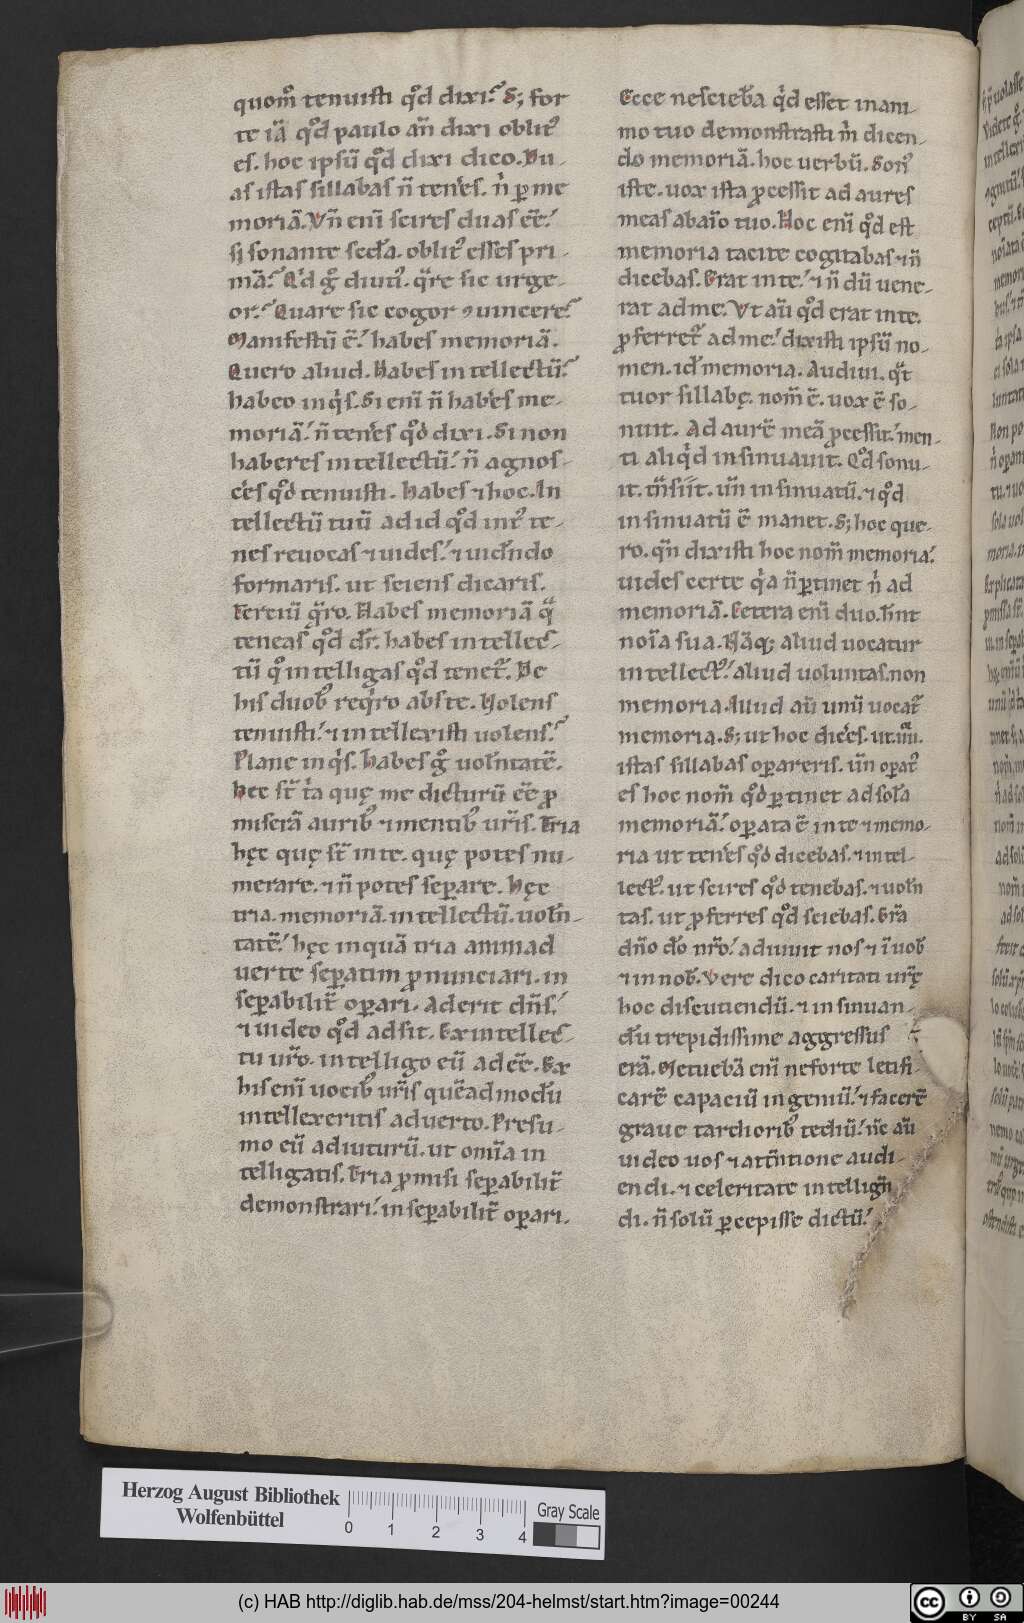 quom̊ tenuisti qđ dixi? S; for
te iā qđ paulo añ dixi oblit᷒
es. hoc ipsū qđ dixi dico. Du
as istas sillabas ñ ten̄es. ñ ꝑ me
moriā. Vñ enī scires duas eē?
si sonante secđa. oblit᷒ esses pri
mā? Qđ g̊ diuti᷒. q̄re sic urge
or? Quare sic cogor ꝯuincere?
Manifestū ē. habes memoriā.
Quero aliud. Habes intellectū?
habeo inqͥs. Si enī ñ hab̄es me
moriā. ñ ten̄es qđ dixi. Si non
haberes intellectū. ñ agnos
c̄es qđ tenuisti. Habes ⁊ hoc. In
tellectū tuū ad id qđ int᷒ te
nes reuocas ⁊ uides. ⁊ uidendo
formaris. ut sciens dicaris.
Terciū q̄ro. Habes memoriā qͣ
teneas qđ dr̄. habes intellec
tū qͦ intelligas qđ tenet᷒. De
his duob᷒ reqͥro abs te. Nolens
tenuisti. ⁊ intellexisti uolens?
Plane inqͥs. habes g̊ uolūntatē.
hec st̄ tͥa quę me dicturū eē ꝓ
miserā aurib᷒ ⁊ mentib᷒ ur̄is. Tria
hęc quę st̄ in te. quę potes nu
merare. ⁊ ñ potes separare. Hęc
tria. memoriā. intellectū. uolūn
tatē. hęc inquā tria animad
uerte sep̱atim ꝓnunciari. in
sep̱abilit̄ op̱ari. Aderit dñs.
⁊ uideo qđ adsit. Ex intellec
tu ur̄o. intelligo eū adeē. Ex
his enī uocib᷒ ur̄is quēadmodū
intellexeritis aduerto. Presu
mo eū adiuturū. ut omīa in
telligatis. Tria ꝓmisi sep̱abilit̄
demonstrari. insep̱abilit̄ op̱ari.
Ecce nescieb̄a qͥd esset in ani
mo tuo demonstrasti m̄ dicen
do memoriā. hoc uerbū. Son᷒
iste. uox ista ꝓcessit ad aures
meas ab aīo tuo. Hoc enī qđ est
memoria tacite cogitabas ⁊ ñ
dicebas. Erat in te. ⁊ ñdū uene
rat ad me. Vt aū qđ erat in te.
ꝓferret᷒ ad me. dixisti ipsū no
men. id᷒ memoria. Audiui. qͣt
tuor sillabę. nom̄ ē. uox ē so
nuit. Ad aurē meā ꝓcessit. men
ti aliqͥd insinuauit. Qđ sonu
it. trāsiit. uñ insinuatū. ⁊ qđ
insinuatū ē manet. S; hoc que
ro. qñ dixisti hoc nom̄ memoria.
uides certe qͥa ñ ꝑtinet ñ ad
memoriā. Cetera enī duo. hñt
noīa sua. Nāq; aliud uocatur
intellect᷒. aliud uoluntas. non
memoria. Aliud aū unū uocat᷒
memoria. S; ut hoc dic̄es. ut. iiii.
istas sillabas opareris. uñ opat᷒
es hoc nom̄ qđ ꝑtinet ad solā
memoriā. op̱ata ē in te ⁊ memo
ria ut ten̄es qđ dicebas. ⁊ intel
lect᷒. ut scires qđ tenebas. ⁊ uolūn
tas. ut ꝓferres qđ sciebas. Gr̄a
dño do nr̄o. adiuuit nos ⁊ ī uob̄
⁊ in nob̄. Vere dico caritati ur̄ę
hoc discutiendū. ⁊ insinuan
dū trepidissime aggressus
erā. Metuebā enī ne forte letifi
carē capaciū ingeniū. ⁊ facerē
graue tardiorib᷒ tediū. ñc aū
uideo uos ⁊ attn̄tione audi
endi. ⁊ celeritate intelligñ
di. ñ solū ꝑcepisse dictū.
Herzog August Bibliothek
Wolfenbüttel
0 1 2 3 4
Gray Scale
(c) HAB http://diglib.hab.de/mss/204-helmst/start.htm?image=00244
cc BY SA